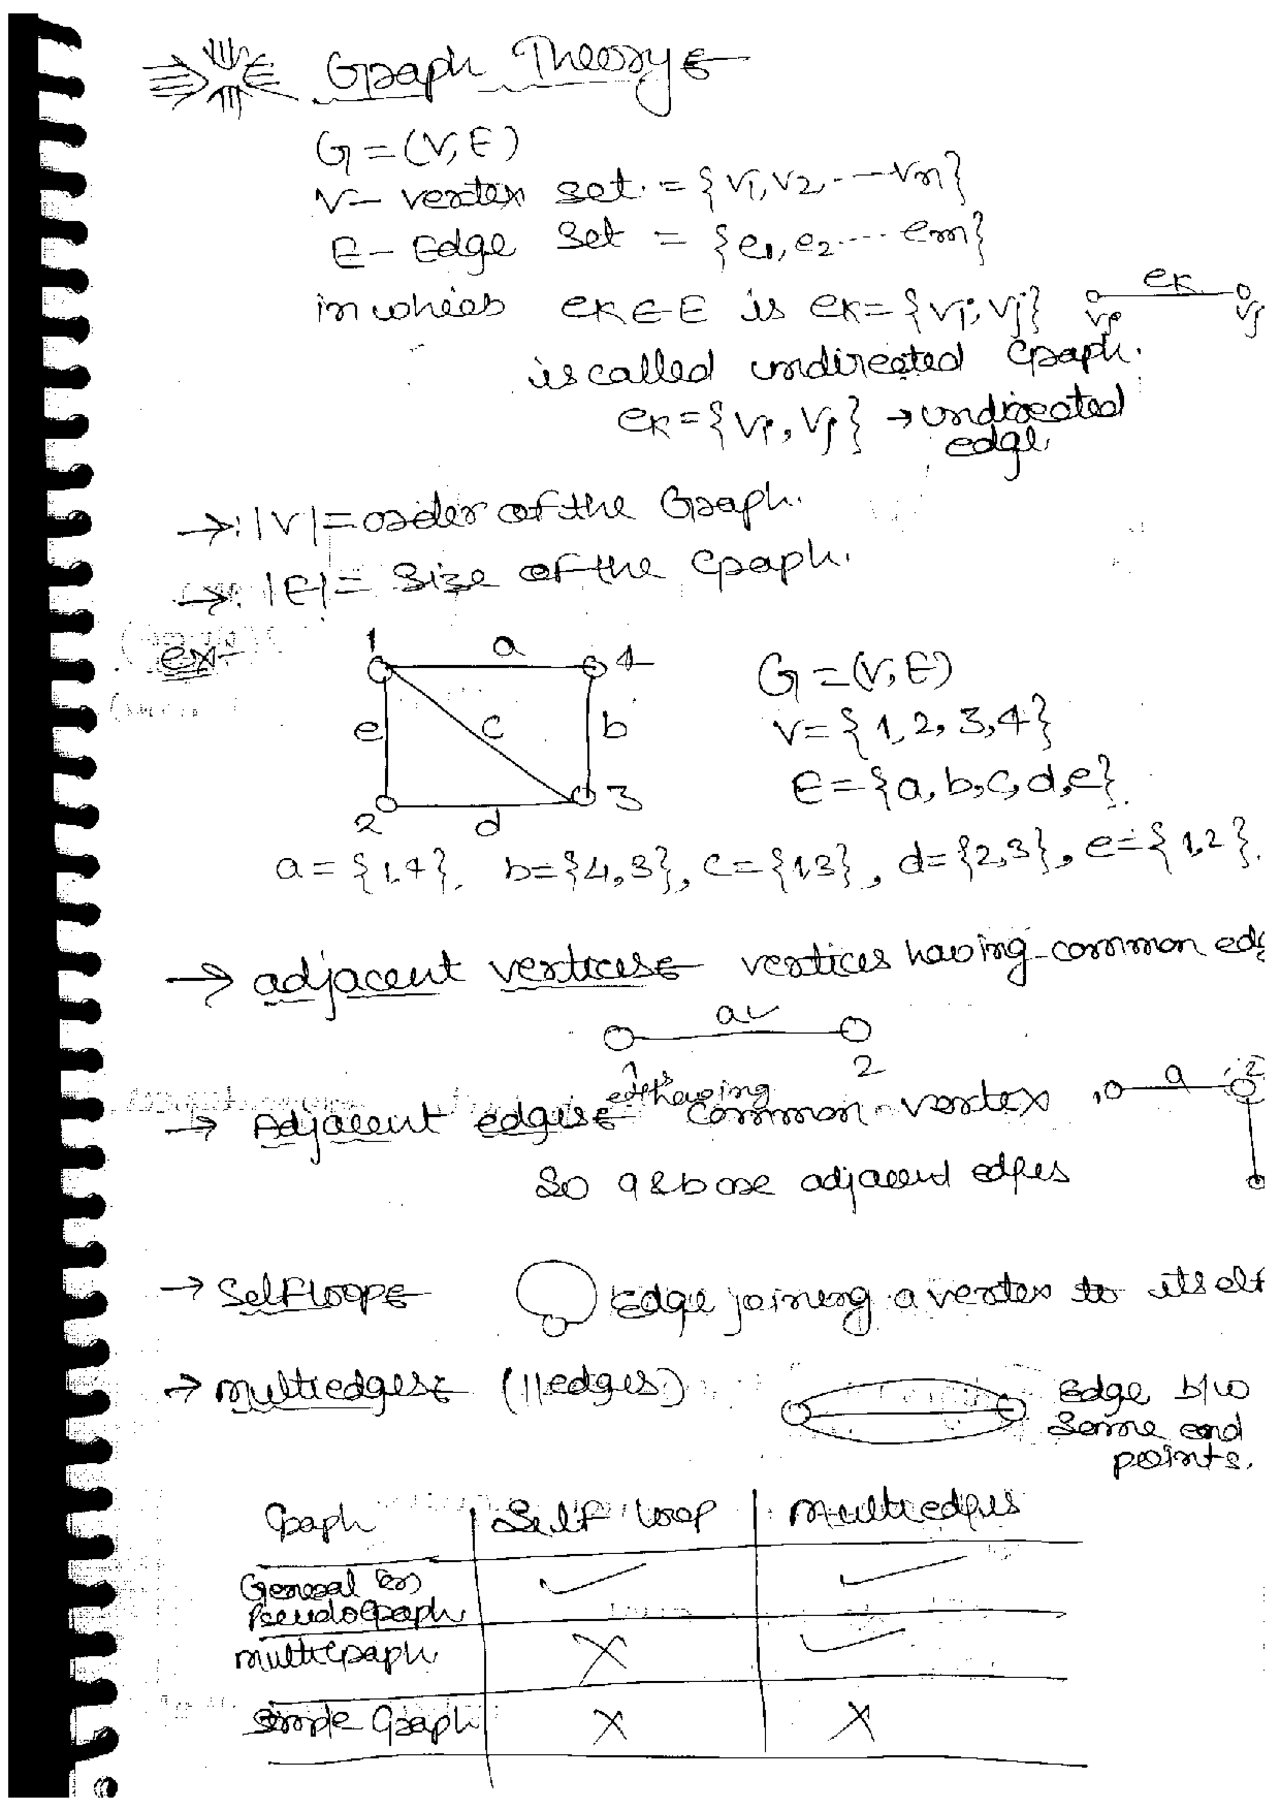 Graph Theory :-
G = (V, E)
V - vertex set. = {v1, v2 .... vn}
E - Edge Set = {e1, e2 .... em}
in which eK ∈ E is eK = {vi, vj} eK
vi vj
is called undirected Graph.
eK = {vi, vj} → undirected
edge.
→ : |V| = order of the Graph.
→ : |E| = Size of the Graph.
ex:-
1 a 4
e c b
2 d 3
G = (V, E)
V = {1, 2, 3, 4}
E = {a, b, c, d, e}
a = {1, 4}, b = {4, 3}, c = {1, 3}, d = {2, 3}, e = {1, 2}.
→ adjacent vertices :- vertices having common
a
1 2
→ Adjacent edges :- having common vertex
1 a 2
So a & b are adjacent edges
→ Self loop :- Edge joining a vertex to itself
→ multiedges :- (|| edges) Edge b/w
Same end
points.
Graph Self loop Multiedges
General (or)
Pseudo Graph ✓ ✓
multi Graph X ✓
Simple Graph X X